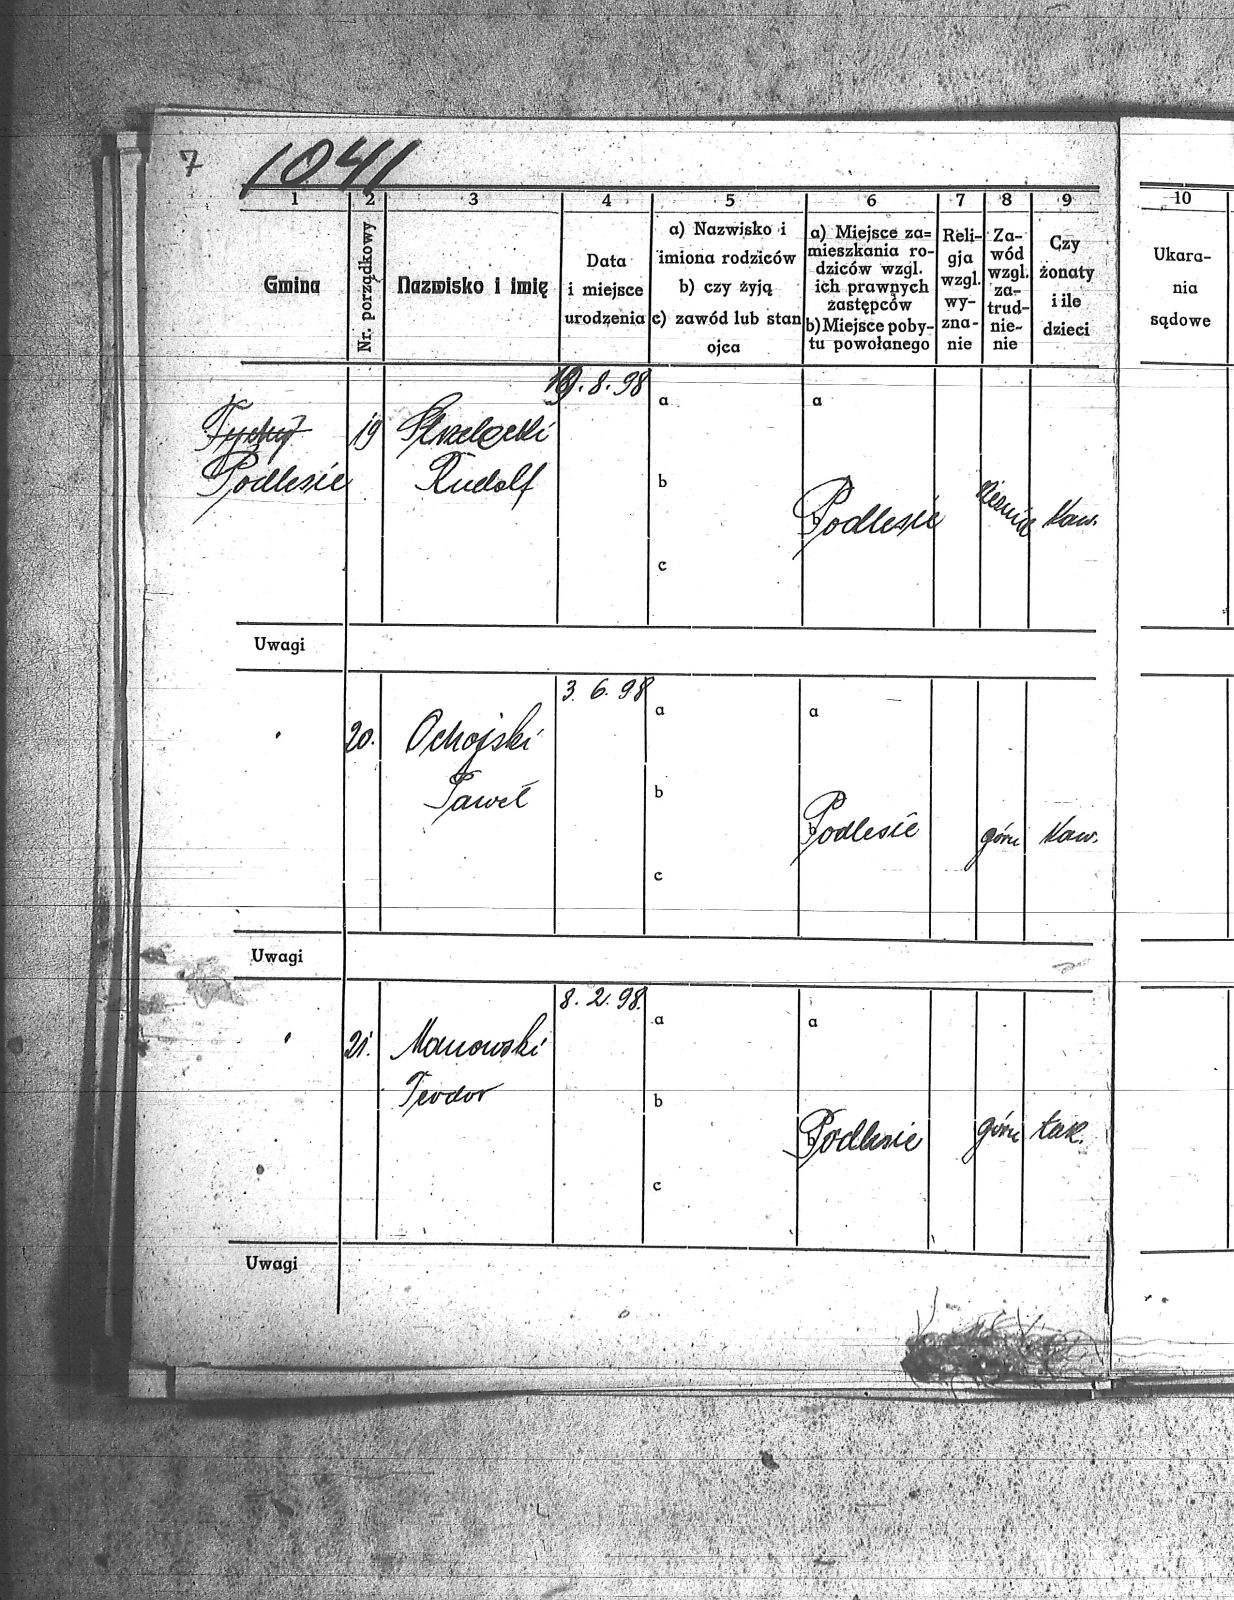 7
1041
1 2 3 4 5 6 7 8 9 10
Gmina
Nr. porządkowy
Nazwisko i imię
Data
i miejsce
urodzenia
a) Nazwisko i
imiona rodziców
b) czy żyją
c) zawód lub stan
ojca
a) Miejsce za=
mieszkania ro-
dziców wzgl.
ich prawnych
zastępców
b) Miejsce poby-
tu powołanego
Reli-
gja
wzgl.
wy-
zna-
nie
Za-
wód
wzgl.
za-
trud-
nie-
nie
Czy
żonaty
i ile
dzieci
Ukara-
nia
sądowe
Podlesie
19
Strzelecki
Rudolf
.8.98
a
b
c
a
b
Podlesie
Kaw.
Uwagi
20.
Ochojski
Paweł
3. 6. 98
a
b
c
a
b
Podlesie
górn
Kaw.
Uwagi
21.
Manowski
Teodor
8. 2. 98.
a
b
c
a
b
Podlesie
górn
tak.
Uwagi